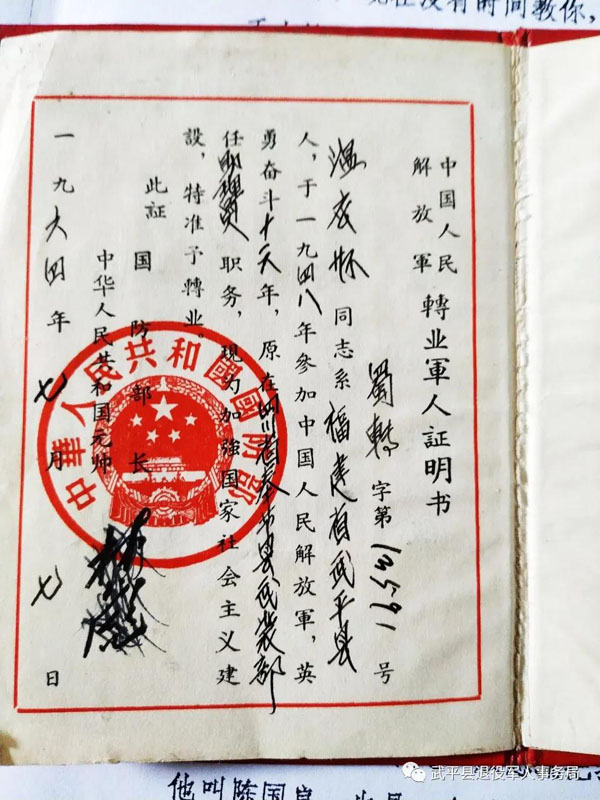 没有时间教你，
中国人民
解放軍
轉业軍人証明书
蜀轉字第 号
温 怀同志系福建省武平县
人，于一九四八年参加中国人民解放軍，英
勇奋斗十六年，原在四川省奉节县武装部
任助理員职务，現为加強国家社会主义建
設，特准予轉业。
此証
国防部长
中华人民共和国元帅
一九六四年七月七日
中華人民共和國國防部
他叫陈国
武平县退役军人事务局